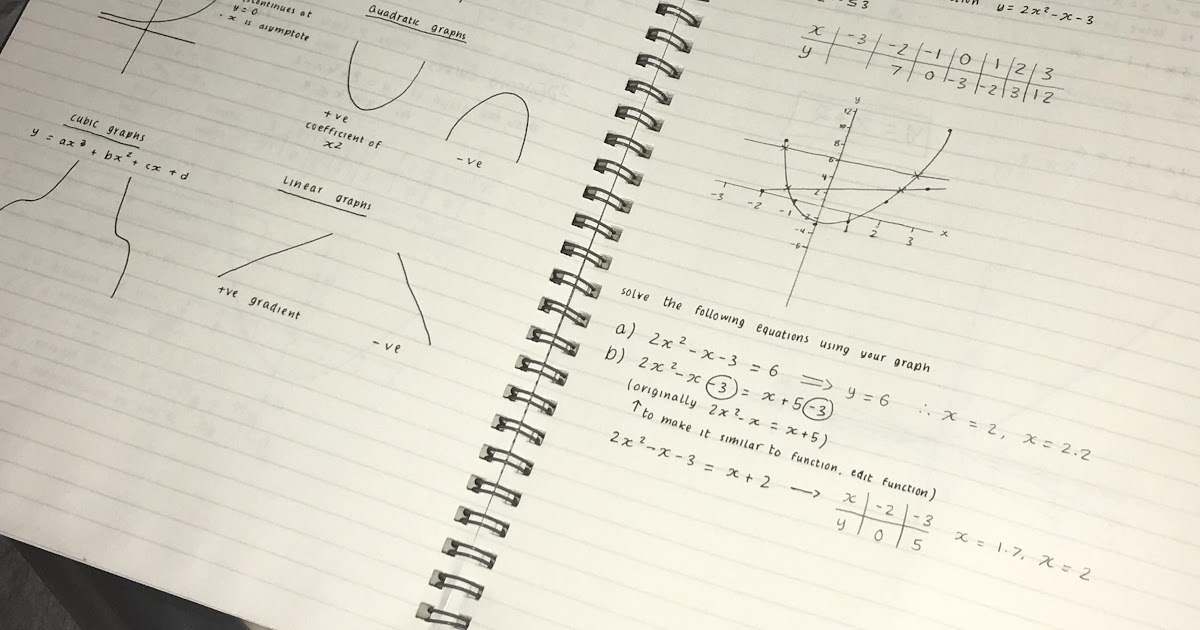 y = 0
· x is asymptote
Quadratic graphs
+ve
coefficient of
x2
-ve
cubic graphs
y = ax³ + bx² + cx + d
Linear graphs
+ve gradient
-ve
y = 2x² - x - 3
x | -3 | -2 | -1 | 0 | 1 | 2 | 3
y | | 7 | 0 | -3 | -2 | 3 | 12
y
12
10
8
6
4
2
-3 -2 -1 1 2 3 x
-2
-4
-6
solve the following equations using your graph
a) 2x² - x - 3 = 6 ⟹ y = 6 ∴ x = 2, x = 2.2
b) 2x² - x - 3 = x + 5 - 3
(originally 2x² - x = x + 5)
↑ to make it similar to function, edit function)
2x² - x - 3 = x + 2 → x | -2 | -3
y | 0 | 5
x = 1.7, x = 2